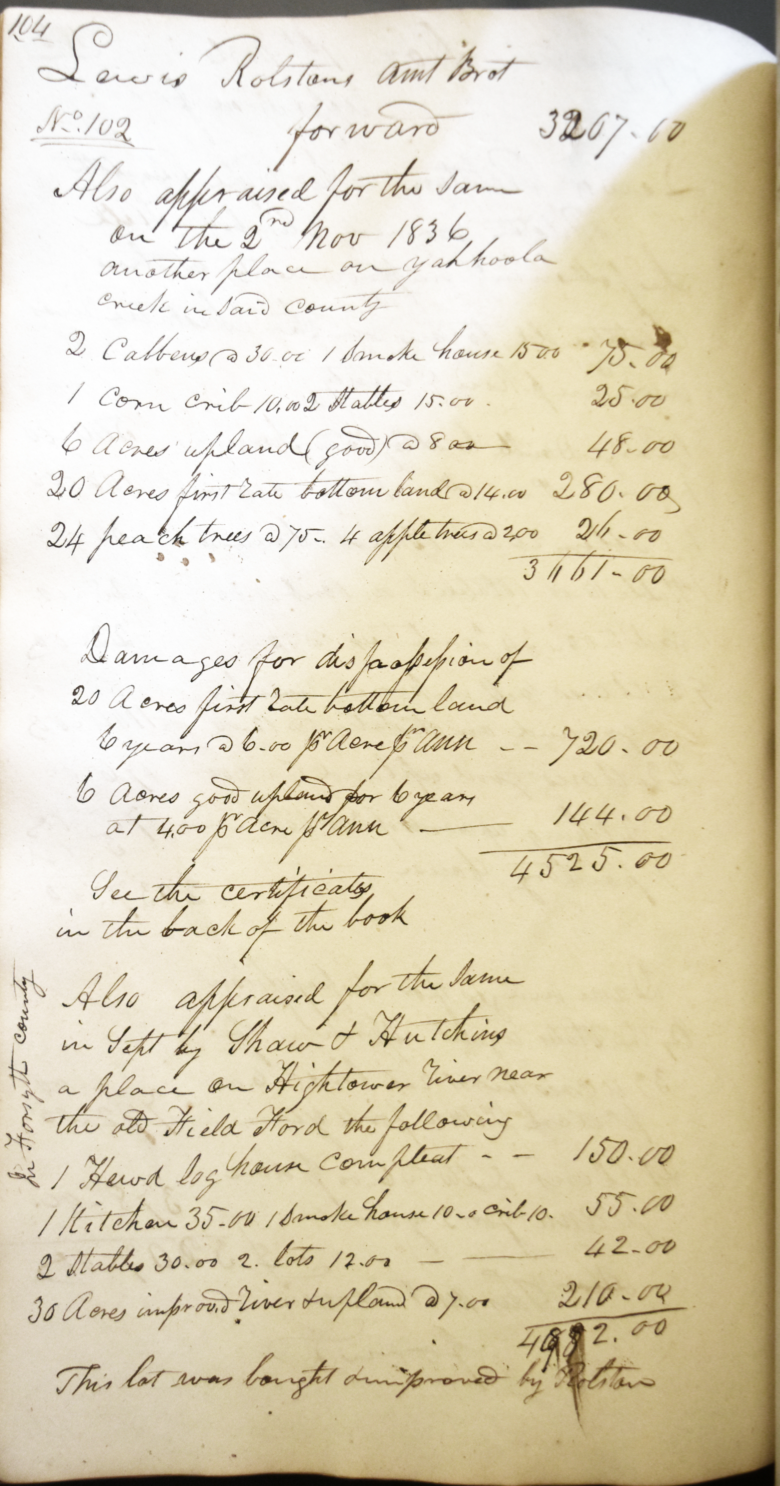 104
Lewis Rolstons amt Brot
No. 102 forward 3207.00
Also appraised for the same
on the 2nd Nov 1836
another place on yahhoola
creek in said county
2 Cabbens @ 30.00 1 Smoke house 15 00 75.00
1 Corn crib 10.00 2 Stables 15.00. 25.00
6 Acres upland (good) @ 8 00 — 48.00
20 Acres first rate bottom land @ 14.00 280.00
24 peach trees @ 75. 4 apple trees @ 200 26.00
3661-00
Damages for dispossession of
20 Acres first rate bottom land
6 years @ 6.00 pr Acre pr Ann -- 720.00
6 Acres good upland for 6 years
at 4.00 pr Acre pr Ann — 144.00
4525.00
See the certificates
in the back of the book
In Forsyth county
Also appraised for the same
in Sept by Shaw & Hutchins
a place on Hightower river near
the old Field Ford the following
1 Hewd log house compleat -- 150.00
1 Kitchen 35-00 1 Smoke house 10.0 crib 10. 55.00
2 Stables 30.00 2. lots 12.00 — — 42-00
30 Acres improvd river & upland @ 7.00 210.00
4982.00
This lot was bought & improved by Rolston